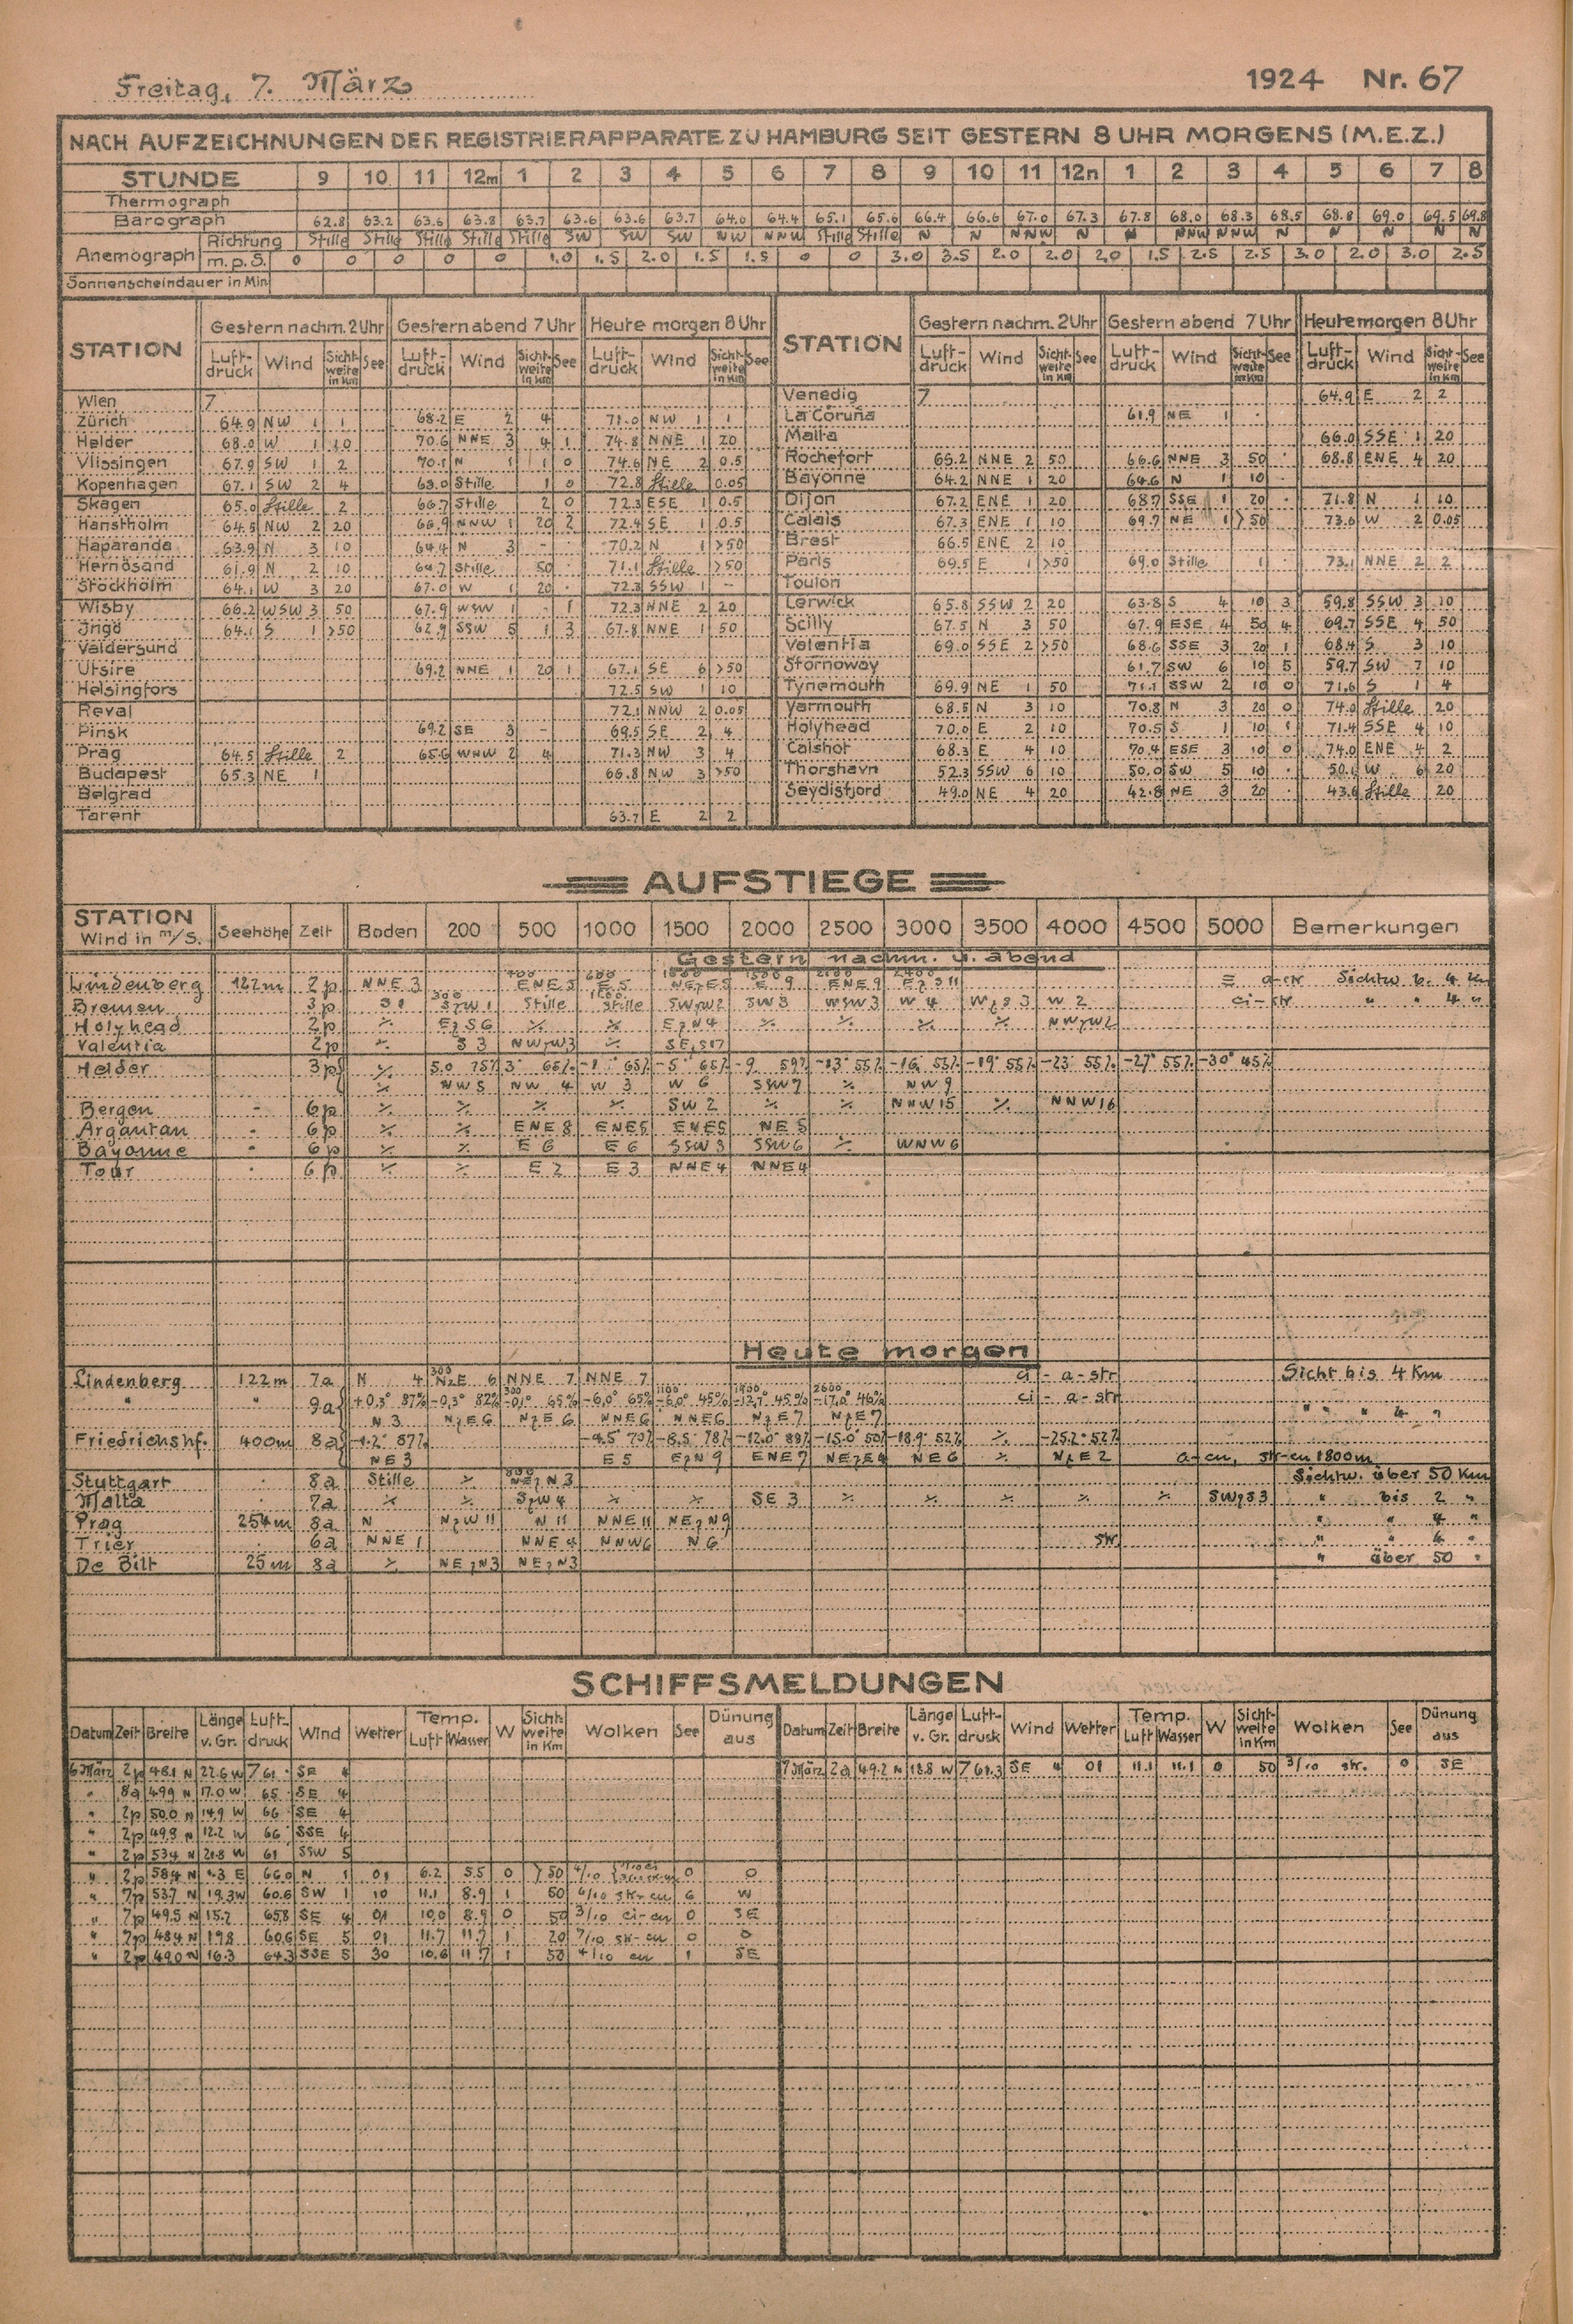 Freitag, 7. März 1924 Nr. 67
NACH AUFZEICHNUNGEN DER REGISTRIERAPPARATE ZU HAMBURG SEIT GESTERN 8 UHR MORGENS (M.E.Z.)
STUNDE 9 10 11 12m 1 2 3 4 5 6 7 8 9 10 11 12n 1 2 3 4 5 6 7 8
Thermograph
Barograph 62.8 63.2 63.6 63.8 63.7 63.6 63.6 63.7 64.0 64.4 65.1 65.6 66.4 66.6 67.0 67.3 67.8 68.0 68.3 68.5 68.8 69.0 69.5 69.8
Anemograph Richtung Stille Stille Stille Stille Stille SW SW SW NW NNW Stille Stille N N NNW N N NNW NNW N N N N N
m.p.S. 0 0 0 0 0 1.0 1.5 2.0 1.5 1.5 0 0 3.0 3.5 2.0 2.0 2.0 1.5 2.5 2.5 3.0 2.0 3.0 2.5
Sonnenscheindauer in Min
STATION Gestern nachm. 2 Uhr Gestern abend 7 Uhr Heute morgen 8 Uhr STATION Gestern nachm. 2 Uhr Gestern abend 7 Uhr Heute morgen 8 Uhr
Luftdruck Wind Sichtweite in Km See Luftdruck Wind Sichtweite in Km See Luftdruck Wind Sichtweite in Km See Luftdruck Wind Sichtweite in Km See Luftdruck Wind Sichtweite in Km See Luftdruck Wind Sichtweite in Km See
Wien 7 Venedig 7 64.9 E 2 2
Zürich 64.9 NW 1 1 68.2 E 2 4 71.0 NW 1 1 La Coruña 61.9 NE 1
Helder 68.0 W 1 10 70.6 NNE 3 4 1 74.8 NNE 1 20 Malta 66.0 SSE 1 20
Vlissingen 67.9 SW 1 2 70.1 N 1 1 0 74.6 NE 2 0.5 Rochefort 65.2 NNE 2 50 66.6 NNE 3 50 68.8 ENE 4 20
Kopenhagen 67.1 SW 2 4 Stille 1 0 72.8 Stille 0.05 Bayonne 64.2 NNE 1 20 64.6 N 1 10
Skagen 65.0 Stille 2 66.7 Stille 2 0 72.3 ESE 1 0.5 Dijon 67.2 ENE 1 20 68.7 SSE 1 20 71.8 N 1 10
Hanstholm 64.5 NW 2 20 66.9 NNW 1 20 2 72.4 SE 1 0.5 Calais 67.3 ENE 1 10 69.7 NE 1 >50 73.6 W 2 0.05
Haparanda 63.9 N 3 10 64.4 N 3 - 70.2 N 1 >50 Brest 66.5 ENE 2 10
Hernösand 61.9 N 2 10 Stille 50 71.1 Stille >50 Paris 69.5 E 1 >50 69.0 Stille 1 73.1 NNE 2 2
Stockholm 64.1 W 3 20 67.0 W 1 20 72.3 SSW 1 - Toulon
Wisby 66.2 WSW 3 50 67.9 WSW 1 - 1 72.3 NNE 2 20 Lerwick 65.8 SSW 2 20 63.8 S 4 10 3 59.8 SSW 3 10
Ingö 64.1 S 1 >50 62.9 SSW 5 1 3 67.8 NNE 1 50 Scilly 67.5 N 3 50 67.9 ESE 4 50 4 69.7 SSE 4 50
Valdersund Valentia 69.0 SSE 2 >50 68.6 SSE 3 20 1 68.4 S 3 10
Utsire 69.2 NNE 1 20 1 67.1 SE 6 >50 Stornoway 61.7 SW 6 10 5 59.7 SW 7 10
Helsingfors 72.5 SW 1 10 Tynemouth 69.9 NE 1 50 71.1 SSW 2 10 0 71.6 S 1 4
Reval 72.1 NNW 2 0.05 Yarmouth 68.5 N 3 10 70.8 N 3 20 0 74.0 Stille 20
Pinsk 69.2 SE 3 - 69.5 SE 2 4 Holyhead 70.0 E 2 10 70.5 S 1 10 1 71.4 SSE 4 10
Prag 64.5 Stille 2 65.6 WNW 2 4 71.3 NW 3 4 Calshot 68.3 E 4 10 70.4 ESE 3 10 0 74.0 ENE 4 2
Budapest 65.3 NE 1 66.8 NW 3 >50 Thorshavn 52.3 SSW 6 10 50.0 SW 5 10 50.1 W 6 20
Belgrad Seydisfjord 49.0 NE 4 20 42.8 NE 3 20 43.6 Stille 20
Tarent 63.7 E 2 2
AUFSTIEGE
STATION Wind in m/s. Seehöhe Zeit Boden 200 500 1000 1500 2000 2500 3000 3500 4000 4500 5000 Bemerkungen
Gestern nachm. u. abend
Lindenberg 122m 2p NNE 3 400 ENE 5 600 E 5 E 9 ENE 9 2400 Sichtw b. 4 Km
Bremen 3p S 1 300 SzW 1 Stille Stille SWzW2 SW 3 WSW 3 W 4 WzS 3 W 2 ci-str " " 4 "
Holyhead 2p % EzS 6 % % EzN 4 % % % % NWzW2
Valentia 2p % S 3 NWzW3 % SEzS17
Helder 3p % 5.0 75% 3° 65% -1° 65% -5° 65% -9 59% -13° 55% -16 55% -19° 55% -23° 55% -27° 55% -30° 45%
% NW 5 NW 4 W 3 W 6 SSW 7 % NW 9
Bergen - 6p % % % % SW 2 % % NNW 15 % NNW 16
Argantan - 6p % % ENE 8 ENE5 ENE5 NE 5
Bayonne - 6p % % E 6 E 6 SSW 3 SSW 6 % WNW 6
Tour 6p % % E 2 E 3 NNE 4 NNE 4
Heute morgen
Lindenberg 122m 7a N 4 300 NzE 6 NNE 7 NNE 7 ci - a-str Sicht bis 4 Km
" " 9a +0,3° 87% -0,3° 82% 300 -0,1° 65% -6,0° 65% 1100 -6,0° 45% 1900 -12,7° 45% 2600 -17,0° 46% ci - a-str
N 3 NzE 6 NzE 6 NNE 6 NNE 6 NzE 7 NzE 7 " " " 4 "
Friedrichshf. 400m 8a -1.2° 87% -4.5° 79% -8.5° 78% -12.0° 89% -15.0° 50% -18.9° 52% % -25.2° 52%
NE 3 E 5 EzN 9 ENE 7 NEzE4 NE 6 % NzE 2 a-cu, str-cu 1800m
Stuttgart 8a Stille % 800 NEzN 3 Sichtw. über 50 Km
Malta 7a % % SzW 4 % % SE 3 % % % % % SWzS3 " bis 2 "
Prag 254m 8a N NzW 11 N 11 NNE 11 NEzN9 " " 4 "
Trier 6a NNE 1 NNE 4 NNW6 N 6 str. " " 6 "
De Bilt 25m 8a % NEzN3 NEzN3 " über 50 "
SCHIFFSMELDUNGEN
Datum Zeit Breite Länge v. Gr. Luftdruck Wind Wetter Temp. Luft Wasser W Sichtweite in Km Wolken See Dünung aus Datum Zeit Breite Länge v. Gr. Luftdruck Wind Wetter Temp. Luft Wasser W Sichtweite in Km Wolken See Dünung aus
6 März 2p 48.1 N 22.6 W 761 SE 4 7 März 2a 49.2 N 18.8 W 761.3 SE 4 01 11.1 11.1 0 50 3/10 str. 0 SE
" 8a 49.9 N 17.0 W 65 SE 4
" 2p 50.0 N 14.9 W 66 SE 4
" 2p 49.9 N 12.2 W 66 SSE 4
" 2p 53.4 N 21.8 W 61 SSW 5
" 2p 58.4 N 4.3 E 66.0 N 1 01 6.2 5.5 0 >50 4/10 0 0
" 7p 53.7 N 19.3 W 60.6 SW 1 10 11.1 8.9 1 50 6/10 str-cu 6 W
" 7p 49.5 N 15.7 65.8 SE 4 01 10.0 8.9 0 50 3/10 ci-cu 0 SE
" 7p 48.4 N 19.8 60.6 SE 5 01 11.7 11.7 1 20 7/10 str-cu 0 0
" 2p 49.0 N 16.3 64.3 SSE 5 30 10.6 11.7 1 50 4/10 cu 1 SE